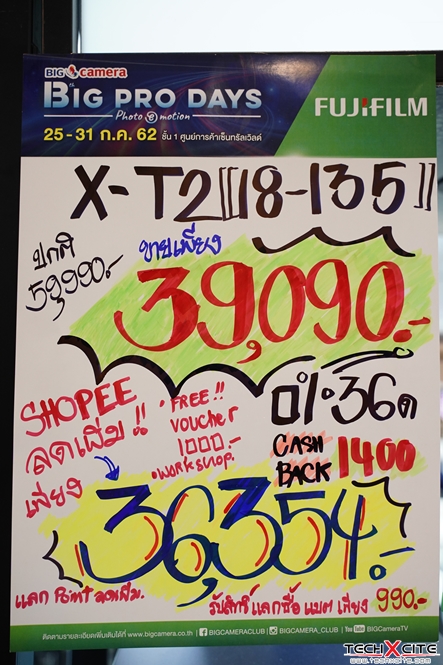 BIG camera
BIG PRO DAYS
Photo motion
25-31 ก.ค. 62 ชั้น 1 ศูนย์การค้าเซ็นทรัลเวิลด์
FUJIFILM
X-T2 [[18-135]]
ปกติ
59,990.-
ขายเพียง
39,090.-
0% 36 ด
SHOPEE
ลดเพิ่ม !!
เพียง
FREE !!
voucher
1000.-
workshop.
CASH
BACK 1400
36,354.-
แลก Point ลดเพิ่ม.
รับสิทธิ์ แลกซื้อ แบต เพียง 990.-
ติดตามรายละเอียดเพิ่มเติมได้ที่ www.bigcamera.co.th
BIGCAMERACLUB
BIGCAMERA_CLUB
YouTube BIGCameraTV
TECHXCITE
www.techxcite.com